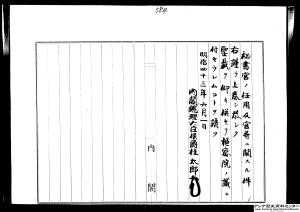 秘書官ノ任用及官等ニ関スル件
右謹テ上奏シ恭シク
聖裁ヲ仰キ併セテ枢密院ノ議ニ
付セラレムコトヲ請フ
明治四十三年六月一日
内閣総理大臣侯爵桂太郎
内閣